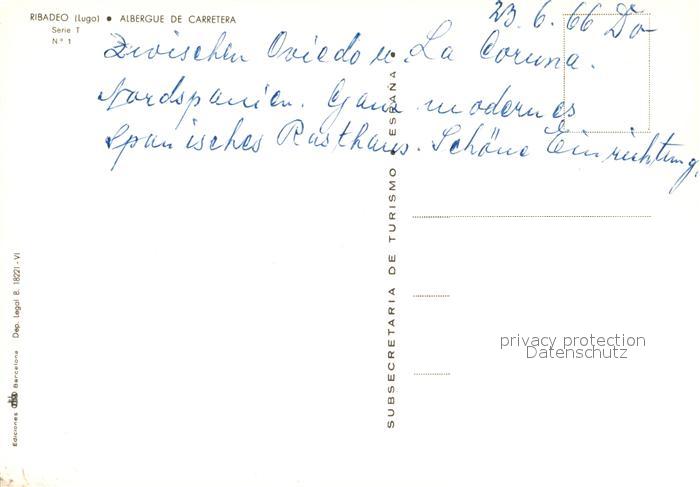 RIBADEO (Lugo) • ALBERGUE DE CARRETERA
Serie T
Nº 1
23. 6. 66 Do
Zwischen Oviedo u. La Coruna.
Nordspanien. Ganz modernes
Spanisches Rasthaus. Schöne Einrichtung.
SUBSECRETARIA DE TURISMO • ESPAÑA •
Ediciones Barcelona Dep. Legal B. 18221-VI
privacy protection
Datenschutz